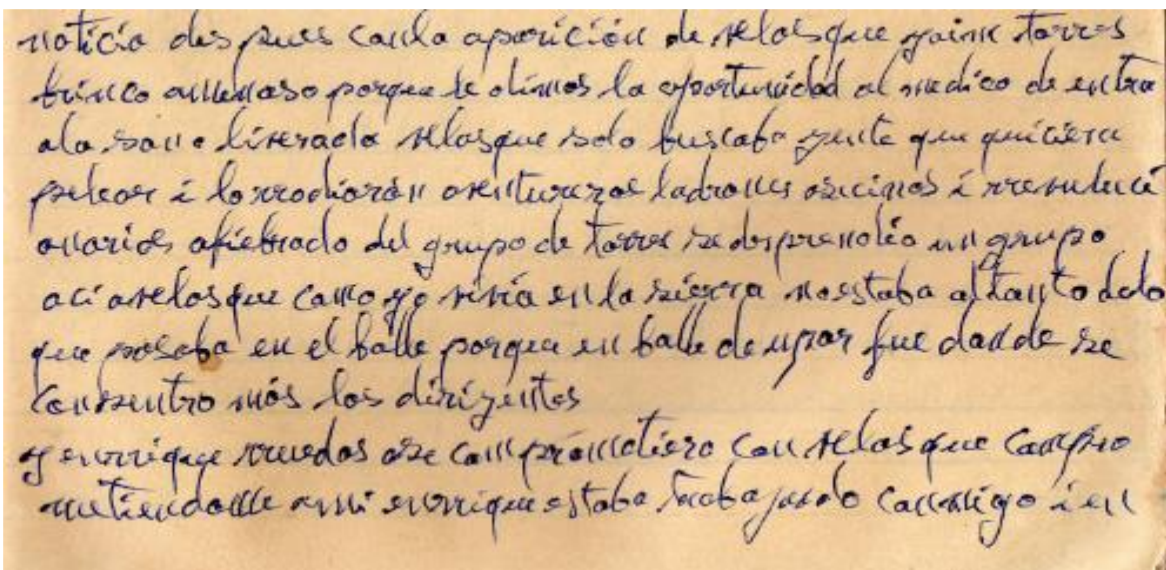 noticia des pues con la aparición de velasque yaime torres
brinco amenaso porque le dimos la oportunidad al medico de entra
ala sona liverada velasque solo buscaba jente que quiciera
pelear i lo rrodiarón aventureros ladrones asecinos i rrevuluci
onarios afiebrado del grupo de torres se desprendio un grupo
aci avelasque como yo vivia en la sierra no estaba al tanto delo
que pasaba en el balle porque en balle de upar fue donde se
consentro más los dirijentes
y enrrique ruedas se comprometiero con velasque compro
metiendome ami enrrique estaba trabajando conmigo i en